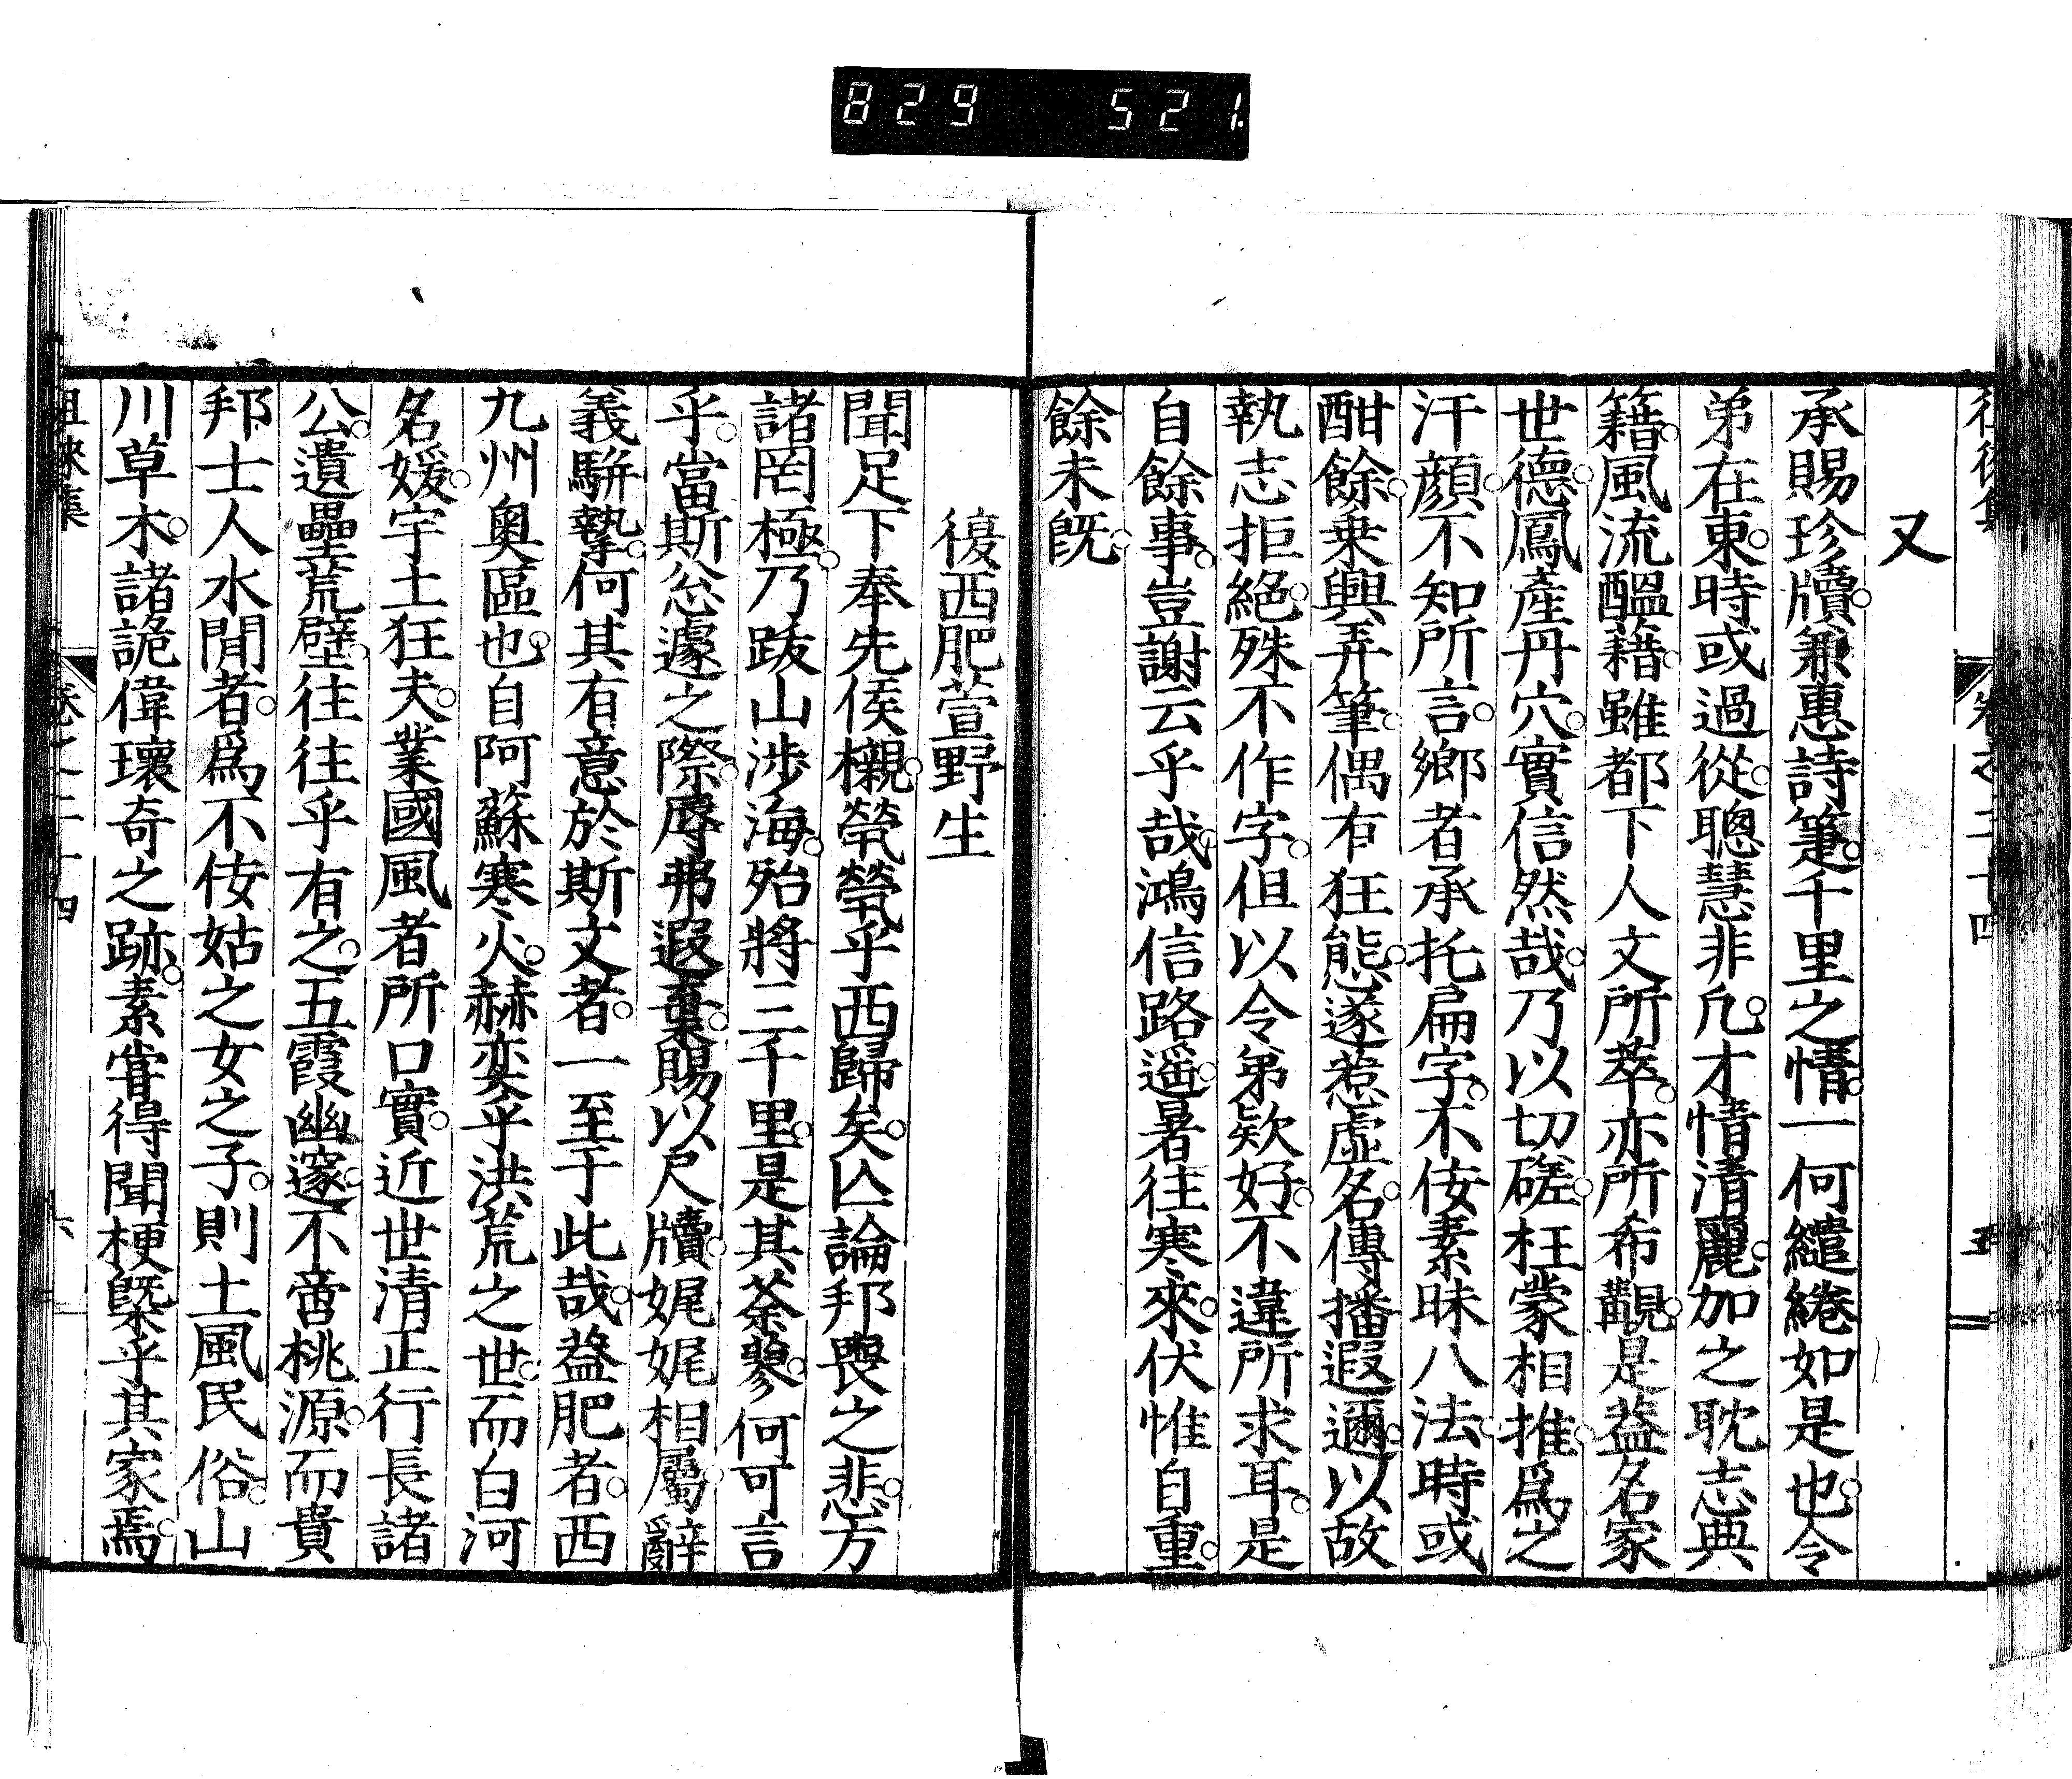 829 521
又
承賜珍牘。兼惠詩箑。千里之情。一何繾綣如是也。令
弟在東。時或過從。聰慧非凡。才情清麗。加之耽志典
籍。風流醞藉。雖都下人文所萃。亦所希覯。是益名家
世德。鳳產丹穴。實信然哉。乃以切磋。枉蒙相推。爲之
汗顔。不知所言。鄉者承托扁字。不侒素昧八法。時或
酣餘。乗興弄筆。偶有狂態。遂惹虛名。傳播遐邇。以故
執志拒絕。殊不作字。但以令弟欵好。不違所求耳。是
自餘事。豈謝云乎哉。鴻信路遥。暑往寒來。伏惟自重。
餘未旣。
復西肥萱野生
聞足下奉先侯櫬。煢煢乎西歸矣。亾論邦喪之悲。方
諸罔極。乃跋山涉海。殆將三千里。是其荼蓼。何可言
乎。當斯忩遽之際。辱弗遐棄。賜以尺牘。娓娓相屬。辭
義駢摯。何其有意於斯文者。一至于此哉。葢肥者。西
九州奧區也。自阿蘇寒火。赫奕乎洪荒之世。而白河
名媛。宇土狂夫。業國風者所口實。近世清正行長諸
公。遺壘荒壁。往往乎有之。五霞幽邃。不啻桃源。而貴
邦士人水間者。爲不侒姑之女之子。則土風民俗。山
川草木。諸詭偉瓌奇之跡。素甞得聞梗槩乎其家焉。
徂徠集 卷之二十四 六